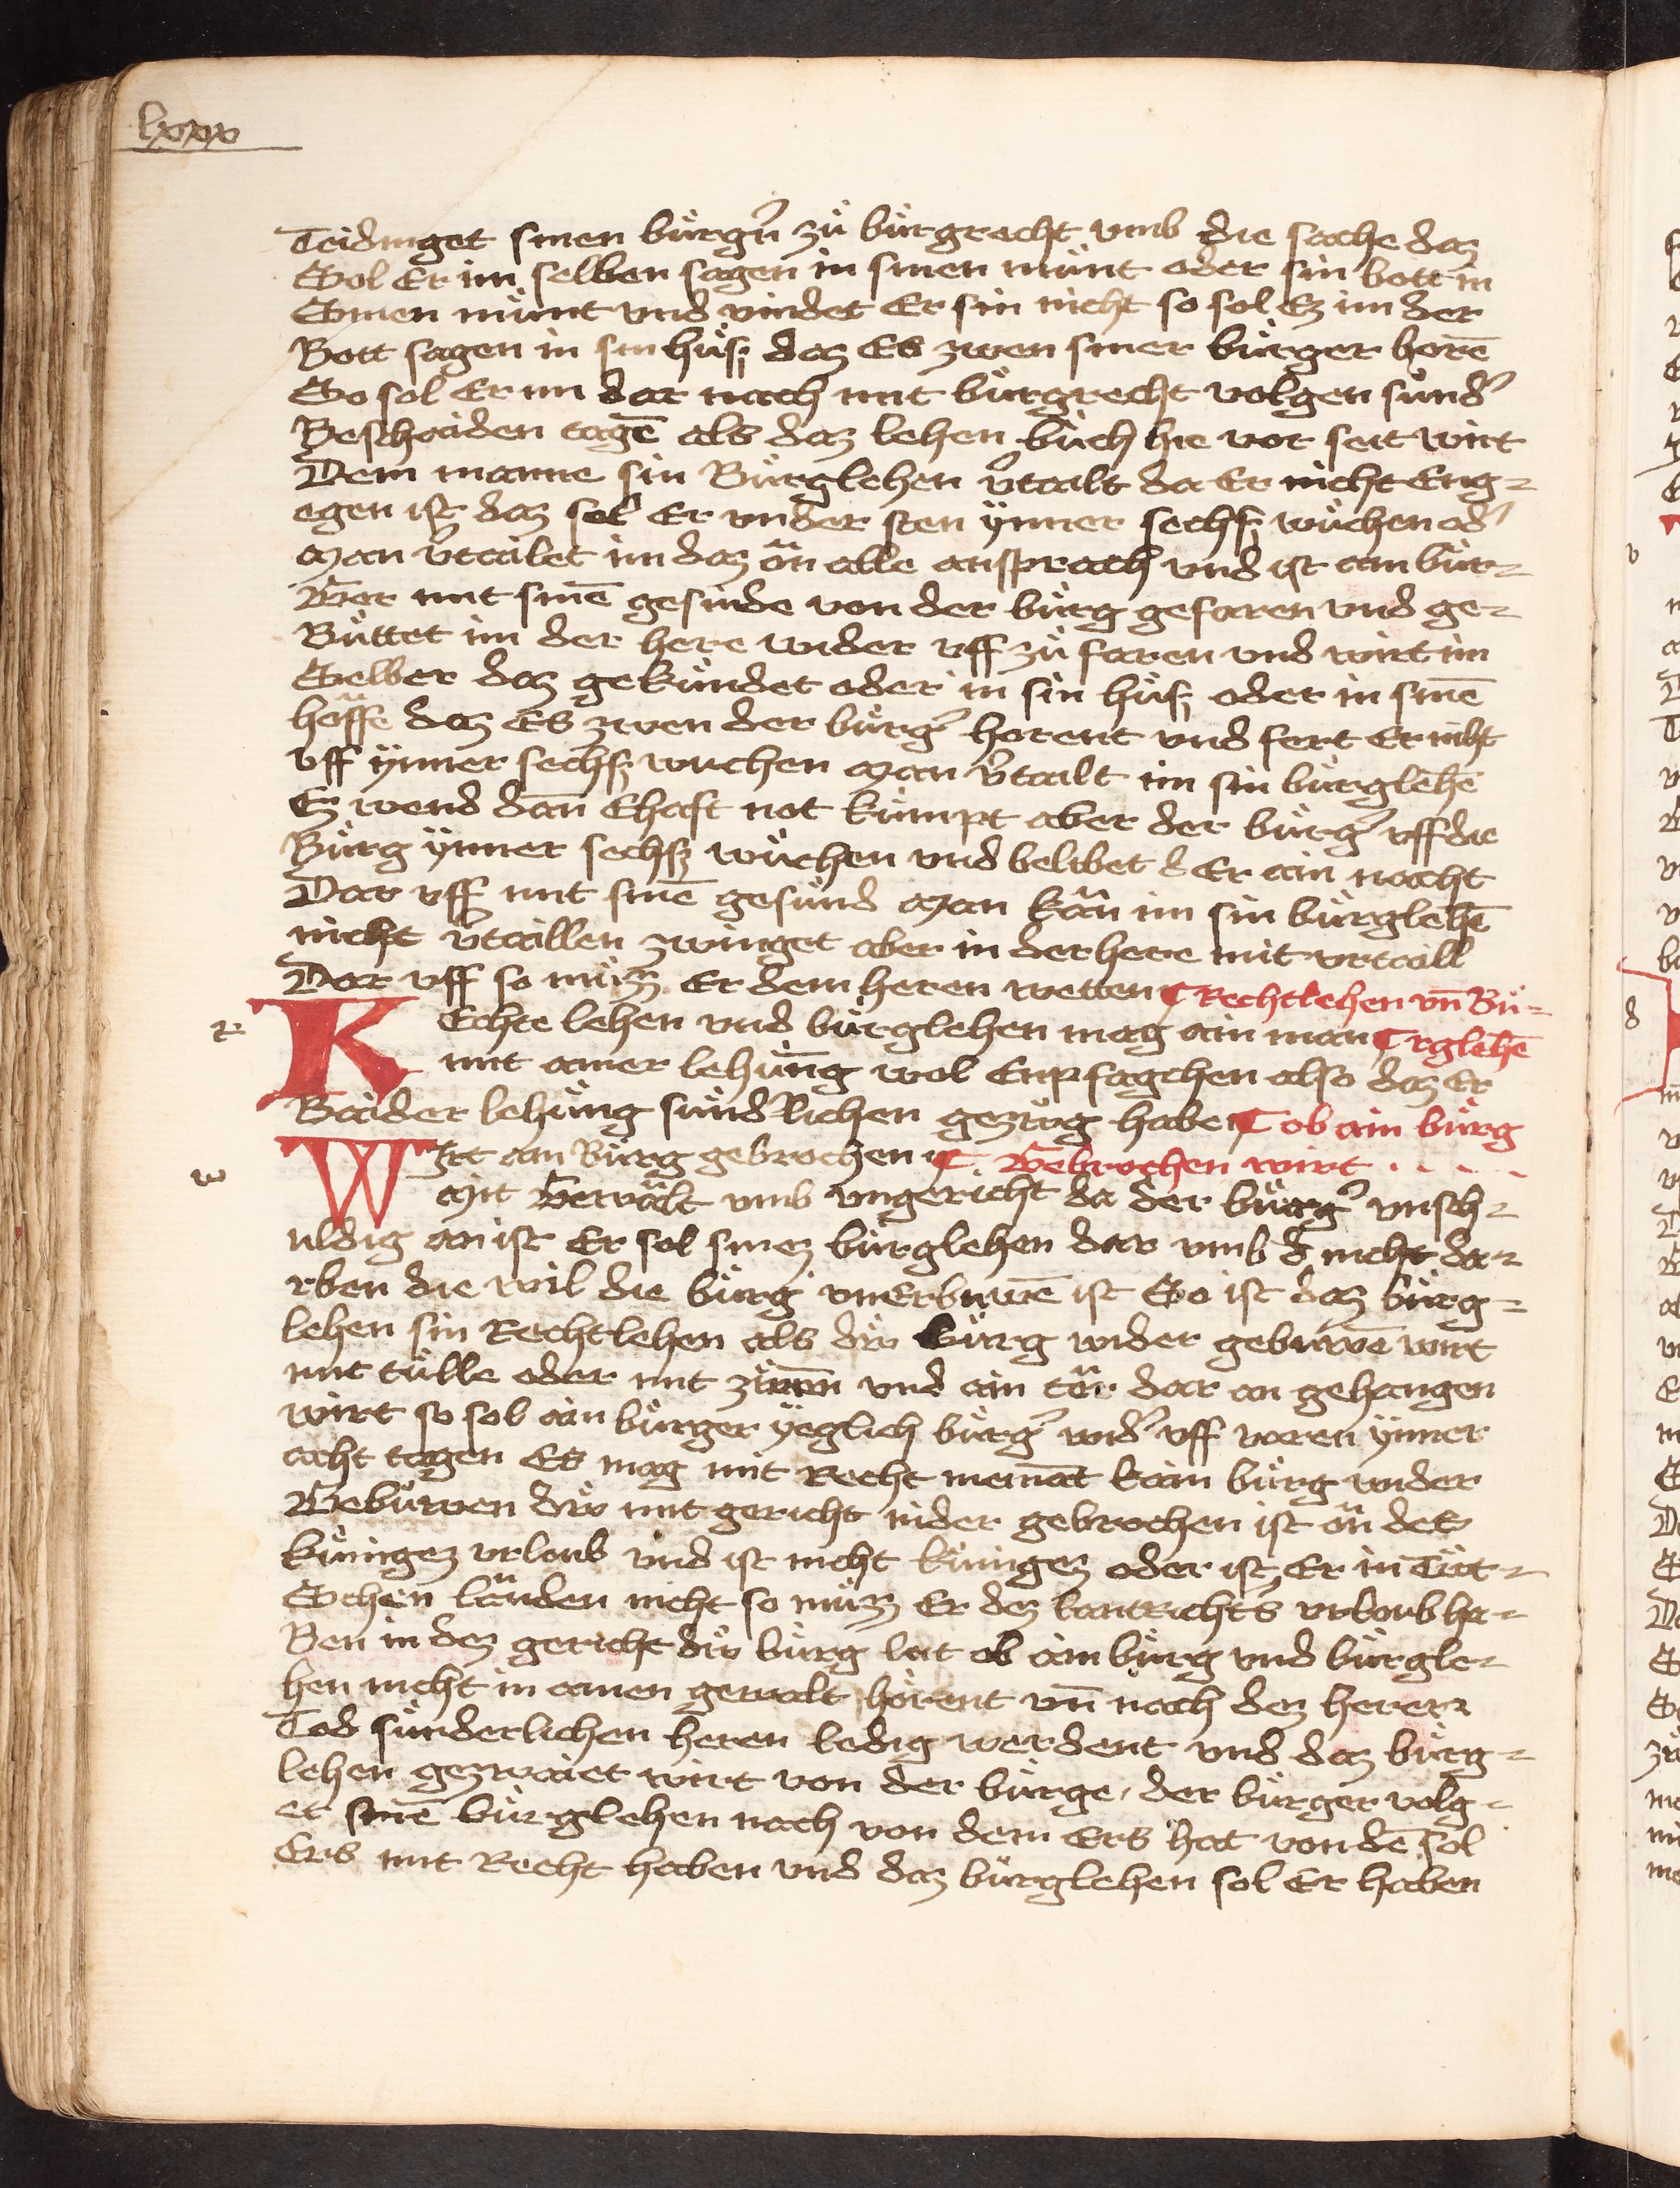 lxxxv
Teidinget sinen bùrgn̄ zů bùrgrecht vmb die sache daz
Sol Er im selben sagen in sinen mùnt oder sin bott in
Sinen mùnt vnd vindet Er sin nicht so sol Ez im der
Bott sagen in sin hùß daz Es zwen siner bùrger horē
So sol Er im dar nach mit bùrgrecht volgen sùnd᾽
Beschaiden tagē als daz lehen bùch hie vor seit wirt
Dem manne sin Bùrglehen v᾽tailt da Er nicht Eng-
egen ist daz sol Er vnder sten ÿnner sechß wùchen od᾽
Man v᾽tailet im daz ân alle ansprach vnd ist ain bùr-
Ger mit sinē gesinde von der bùrg gefaren vnd ge-
Bùttet im der here wider vff zů faren vnd wirt im
Selber daz gekùndet oder in sin hùß oder in sinē
hoffe daz Es zwen der bùrg᾽ horent vnd fert Er niht
vff ÿnner sechß wuchen Man v᾽tailt im sin bùrglehē
Ez wend dan̄ Ehaft not kùmpt aber der bùrg᾽ vff die
Bùrg ÿnner sechß wùchen vnd belibet d Er ain nacht
Dar vff mit sinē gesùnd Man kân im sin bùrglehē
nicht v᾽taillen zwinget aber in der here mit vrtaill
Dar vff so mùz Er dem heren wetten ¶ Rechtlehen vn̄ Bù-
r Rechte lehen vnd bùrglehen mag ain man ¶ rglehē
mit ainer lehùng wol Enpfagchen also daz Er
Baider lehùng sùndˀlichen gezùg habe ¶ ob ain bùrg
w Wirt ain Bùrg gebrochen ¶ Gebrochen wirt . . . .
Mit Gewâlt vmb vngericht da der bùrg᾽ vnsch-
uldig an ist Er sol sinez bùrglehen dar vmb d nicht da-
rben die wil die bùrg vnErbùwē ist So ist daz bùrg-
lehen sin Rechtlehen als dù bùrg wider gebùwē wirt
mit tùlle oder mit zùnen vnd ain tôr dar an gehangen
wirt so sol ain bùrger ÿeglich bùrg᾽ wid᾽ vff varen ÿnner
acht tagen Es mag mit Recht niemāt kain bùrg wider
Gebùwen dù mit gericht nider gebrochen ist ân des
kùnigez vrloub vnd ist nicht kùnigez oder ist Er in Tùt-
Schen lânden nicht so mùz Er dez lantrichts vrloub ha-
Ben in dez gericht dù bùrg lait ob ain bùrg vnd bùrgle-
hen nicht in ainen gewalt hòrent vn̄ nach dez heren
Tod sùnderlichen heren ledig werdent vnd daz bùrg-
lehen gezwaiet wirt von der bùrge, der bùrger volg-
et sinē bùrglehen nach von dem Ers hat von dē sol
Ers mit Recht haben vnd daz bùrglehen sol Er haben